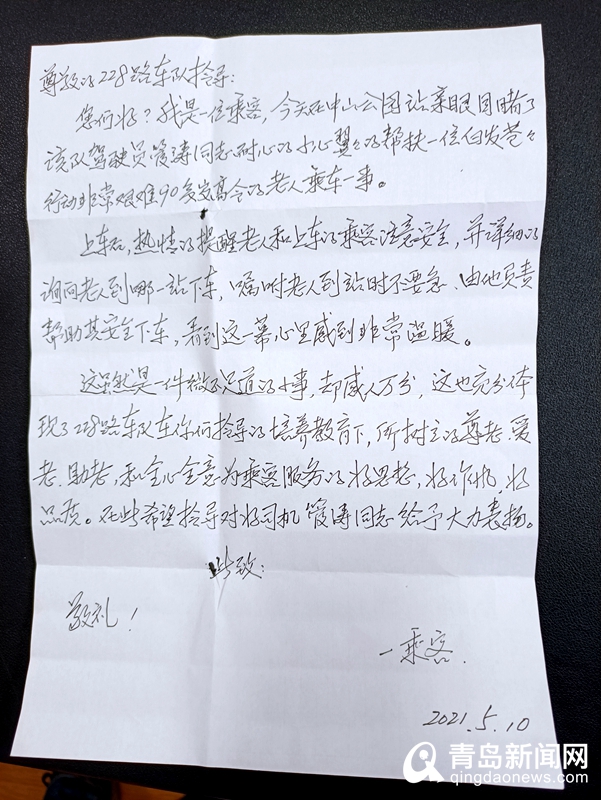 尊敬的228路车队领导：
您们好？我是一位乘客，今天在中山公园站亲眼目睹了
该队驾驶员管涛同志耐心的小心翼々的帮扶一位白发苍々
行动非常艰难90多岁高令的老人乘车一事。
上车后，热情的提醒老人和上车的乘客注意安全，并详细的
询问老人到哪一站下车，嘱咐老人到站时不要急、由他负责
帮助其安全下车，看到这一幕心里感到非常温暖。
这虽然是一件微不足道的小事，却感人万分，这也充分体
现了228路车队在你们领导的培养教育下，所树立的尊老、爱
老、助老，和全心全意为乘客服务的好思想，好作风，好
品质。在此希望领导对好司机管涛同志给予大力表扬。
此致：
敬礼！
一乘客
2021.5.10
青岛新闻网
qingdaonews.com